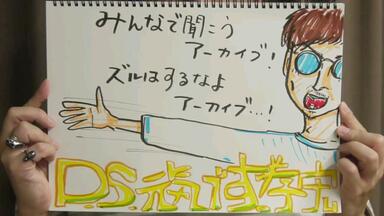 みんなで聞こう
アーカイブ!
ズルはするなよ
アーカイブ…!
D.S.